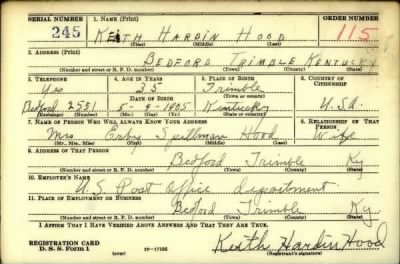 SERIAL NUMBER 1. NAME (Print) ORDER NUMBER
245 KEITH HARDIN HOOD 115
(First) (Middle) (Last)
2. ADDRESS (Print)
BEDFORD TRIMBLE KENTUCKY
(Number and street or R. F. D. number) (Town) (County) (State)
3. TELEPHONE 4. AGE IN YEARS 5. PLACE OF BIRTH 6. COUNTRY OF CITIZENSHIP
Yes 35 Trimble
DATE OF BIRTH (Town or county)
Bedford 2551 5-9-1905 Kentucky U.S.A.
(Exchange) (Number) (Mo.) (Day) (Yr.) (State or country)
7. NAME OF PERSON WHO WILL ALWAYS KNOW YOUR ADDRESS 8. RELATIONSHIP OF THAT PERSON
Mrs Erby Spillman Hood Wife
(Mr., Mrs., Miss) (First) (Middle) (Last)
9. ADDRESS OF THAT PERSON
Bedford Trimble Ky
(Number and street or R. F. D. number) (Town) (County) (State)
10. EMPLOYER'S NAME
U.S. Post office department
11. PLACE OF EMPLOYMENT OR BUSINESS
Bedford Trimble Ky
(Number and street or R. F. D. number) (Town) (County) (State)
I AFFIRM THAT I HAVE VERIFIED ABOVE ANSWERS AND THAT THEY ARE TRUE.
REGISTRATION CARD
D. S. S. Form 1 (over) Keith Hardin Hood
(Registrant's signature)